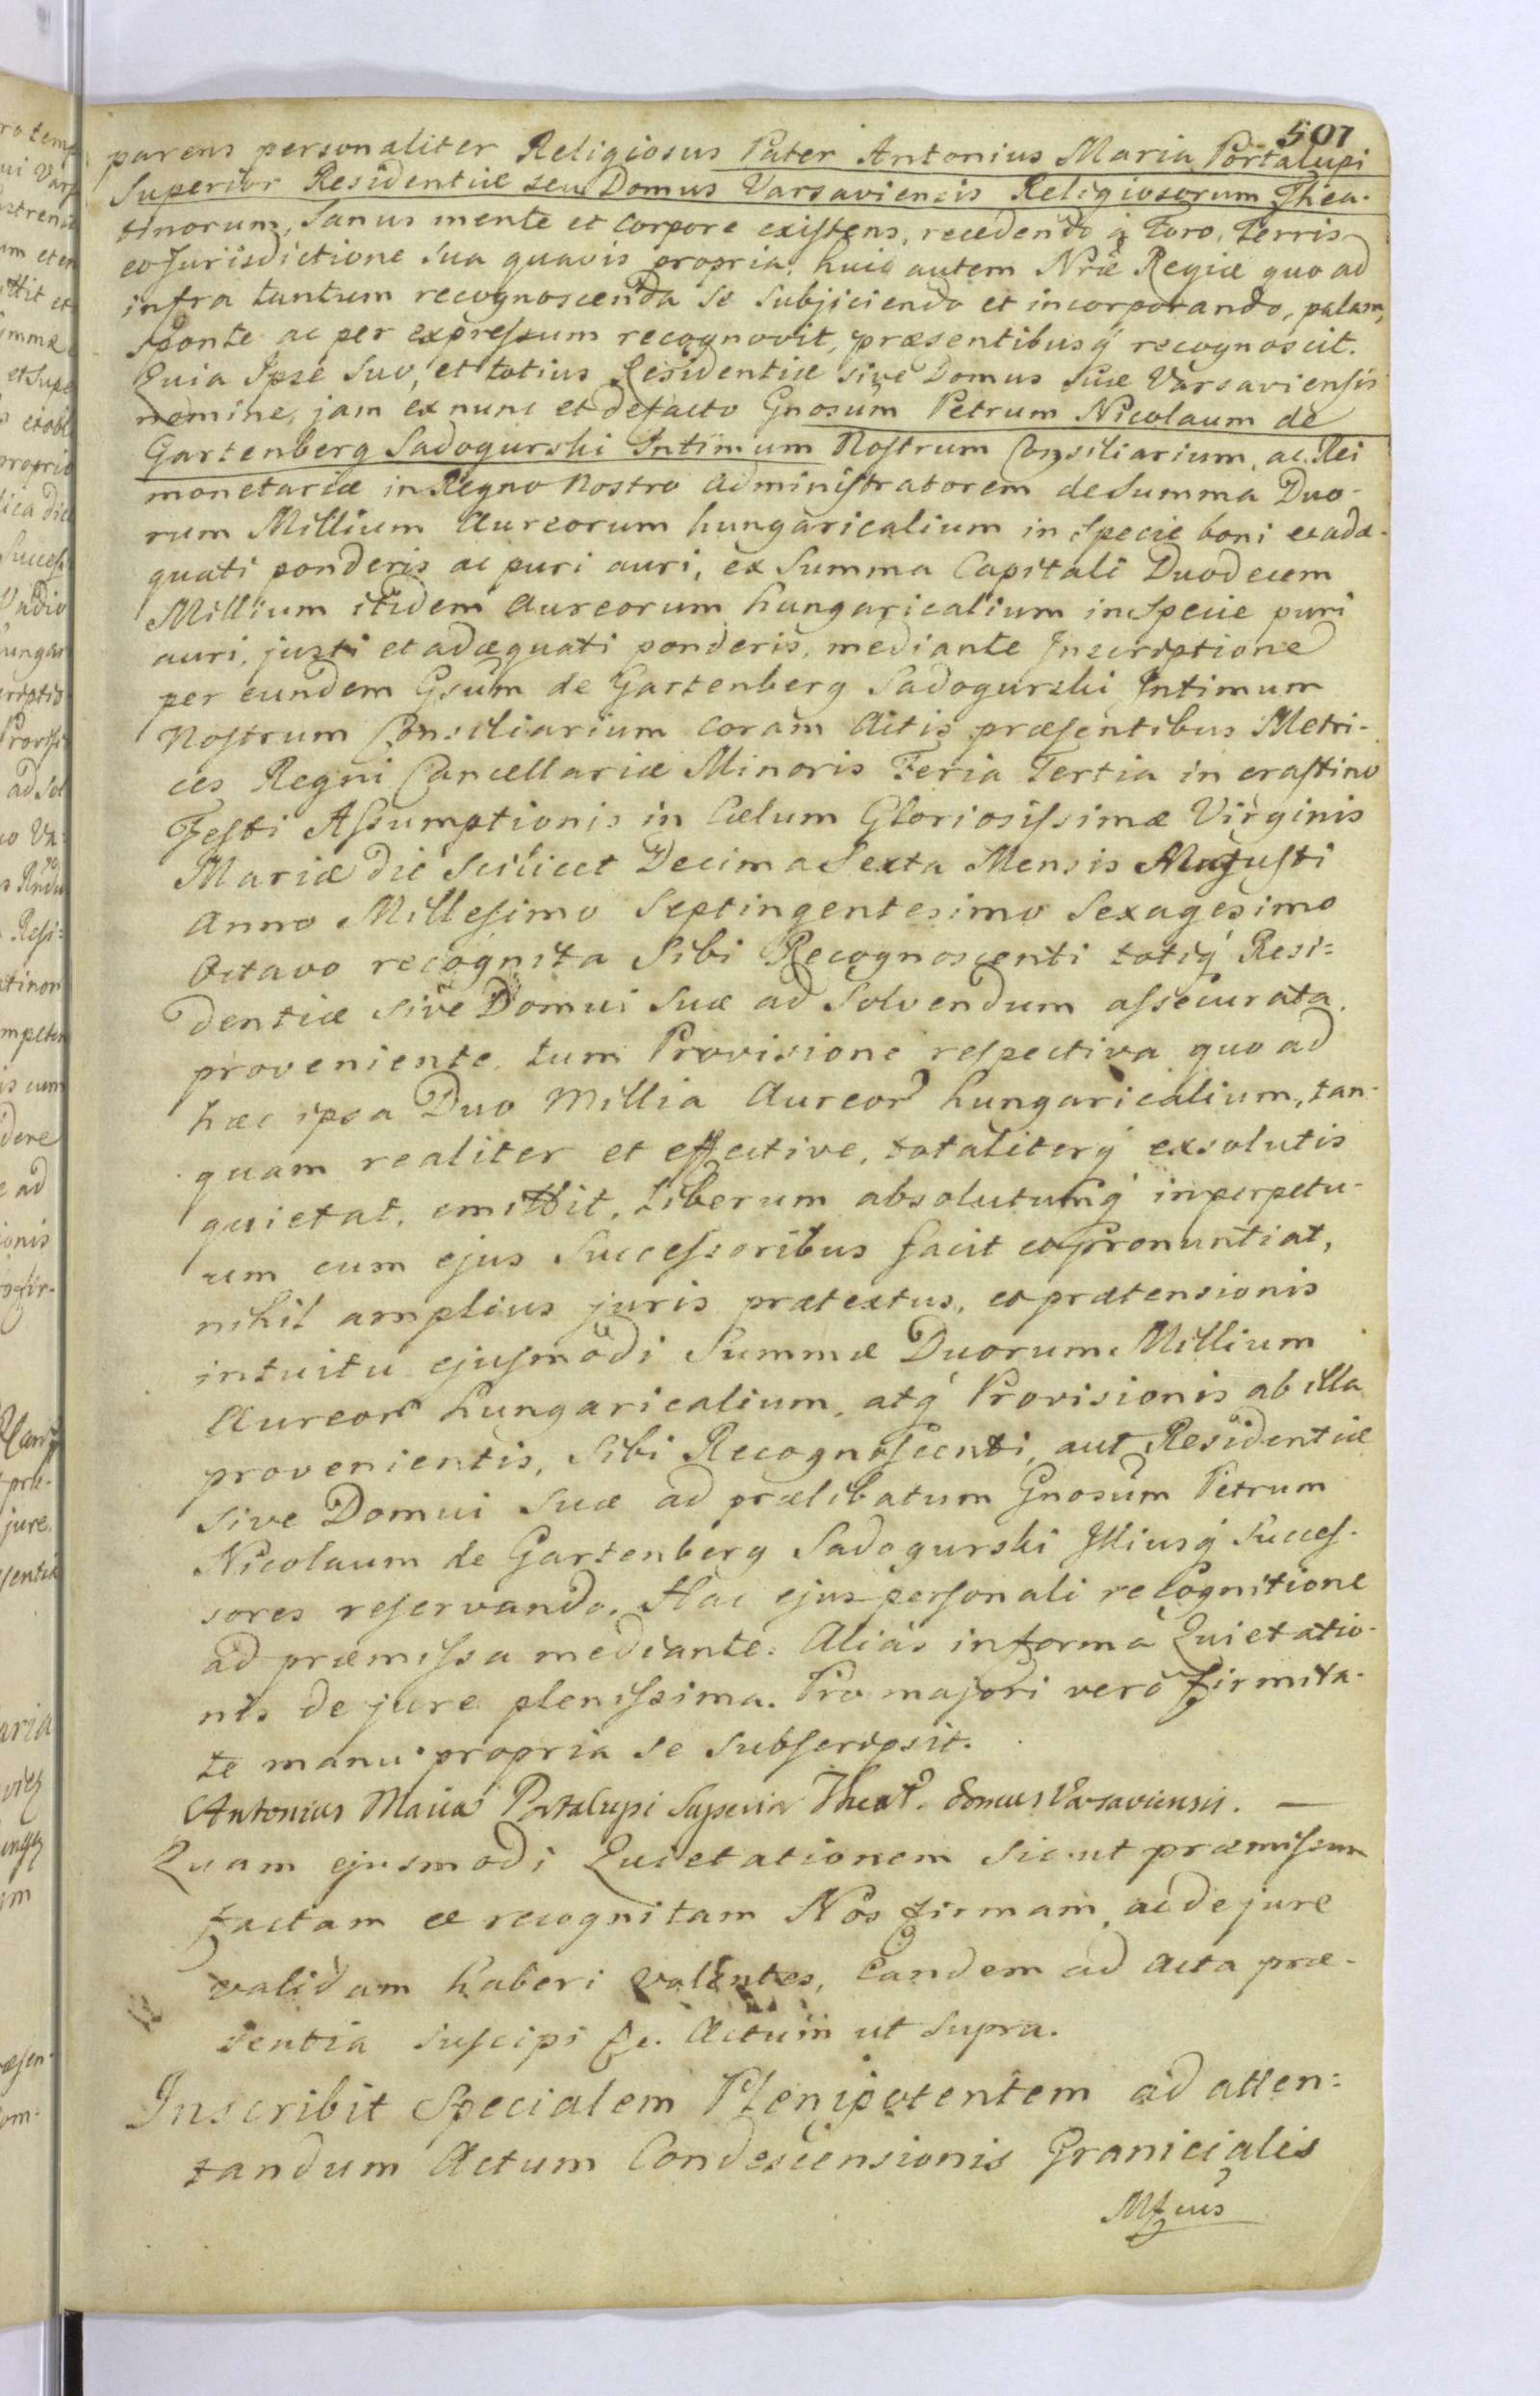 507
parens personaliter Religiosus Pater Antonius Maria Portalupi
Superior Residentiæ seu Domus Varsaviensis Religiosorum Thea-
tinorum, Sanus mente et Corpore existens, recedendo à Foro, Terris
et Jurisdictione Sua quavis propria, huic autem Nrãe Regiæ quo ad
infra tantum recognoscenda se Subjiciendo et incorporando, palam,
sponte ac per expressum recognovit, præsentibusq́ recognoscit.
Quia Ipse Suo, et totius Residentiæ sive Domus Suæ Varsaviensis
nomine, jam ex nunc et defacto Gnosum Petrum Nicolaum de
Gartenberg Sadogurski Intimum Nostrum Consiliarium, ac Rei
monetariæ in Regno Nostro Administratorem de Summa Duo-
rum Millium Aureorum hungaricalium in Specie boni et adæ-
quati ponderis ac puri auri, ex Summa Capitali Duodecem
Millium itidem Aureorum hungaricalium in Specie puri
auri, justi et adæquati ponderis, mediante Inscriptione
per eundem Gsum de Gartenberg Sadogurski Intimum
Nostrum Consiliarium coram Actis præsentibus Metri-
ces Regni Cancellariæ Minoris Feria Tertia in crastino
Festi Assumptionis in Cælum Gloriosissimæ Virginis
Mariæ die Scilicet Decima Sexta Mensis Augusti
Anno Millesimo Septingentesimo Sexagesimo
Octavo recognita Sibi Recognoscenti totiq́ Resi=
dentiæ sive Domui Suæ ad Solvendum assecurata,
proveniente, tum Provisione respectiva quo ad
hæc ipsa Duo Millia Aureor hungaricalium, tan-
quam realiter et effective, totaliterq́ exsolutis
quietat, emittit, Liberum absolutumq́ in perpetu-
um cum ejus Successoribus facit et pronuntiat,
nihil amplius juris prætextus, et prætensionis
intuitu ejusmodi Summæ Duorum Millium
Aureor hungaricalium, atq́ Provisionis ab illa
provenientis, Sibi Recognoscenti, aut Residentiæ
Sive Domui Suæ ad prælibatum Gnosum Petrum
Nicolaum de Gartenberg Sadogurski Illiusq́ Succes-
sores reservando. Hac ejus personali recognitione
ad præmissa mediante. Aliàs in forma Quietatio-
nis de jure plenissima. Pro majori verò firmita-
te manu propria se Subscripsit.
Antonius Maria Portalupi Superior Theat. Domus Varsaviensis. —
Quam ejusmodi Quietationem Sicut præmissum
factam et recognitam Nos firmam, ac de jure
validam haberi volentes, Eandem ad Acta præ-
sentia Suscipi &c. Actum ut Supra.
Inscribit Specialem Plenipotentem ad atten=
tandum Actum Condescensionis Granicialis